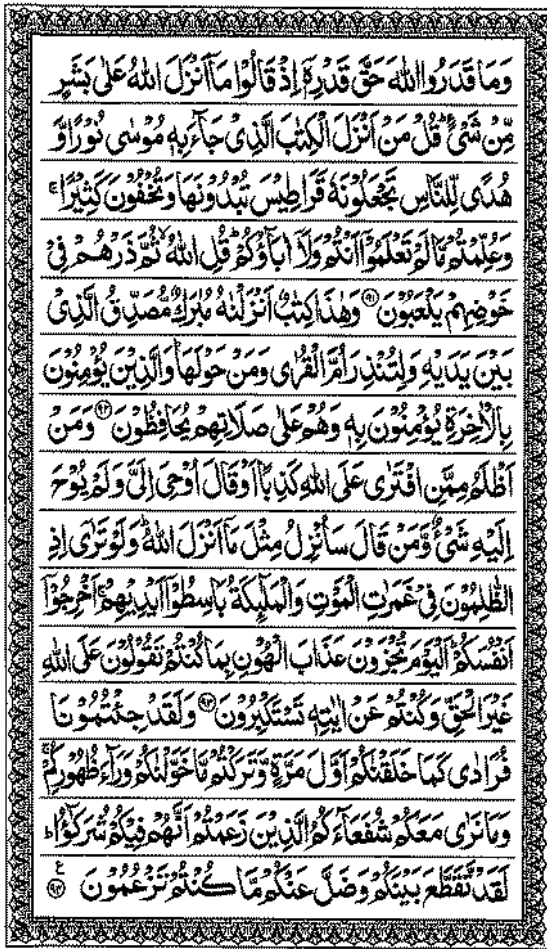 وَمَا قَدَرُوا اللّٰهَ حَقَّ قَدْرِهٖۤ اِذْ قَالُوْا مَاۤ اَنْزَلَ اللّٰهُ عَلٰى بَشَرٍ
مِّنْ شَیْءٍ ؕ قُلْ مَنْ اَنْزَلَ الْكِتٰبَ الَّذِیْ جَآءَ بِهٖ مُوْسٰى نُوْرًا وَّ
هُدًى لِّلنَّاسِ تَجْعَلُوْنَهٗ قَرَاطِیْسَ تُبْدُوْنَهَا وَتُخْفُوْنَ كَثِیْرًا ۚ
وَعُلِّمْتُمْ مَّا لَمْ تَعْلَمُوْۤا اَنْتُمْ وَلَاۤ اٰبَآؤُكُمْ ؕ قُلِ اللّٰهُ ۙ ثُمَّ ذَرْهُمْ فِیْ
خَوْضِهِمْ یَلْعَبُوْنَ ﴿۹۱﴾ وَهٰذَا كِتٰبٌ اَنْزَلْنٰهُ مُبٰرَكٌ مُّصَدِّقُ الَّذِیْ
بَیْنَ یَدَیْهِ وَلِتُنْذِرَ اُمَّ الْقُرٰى وَمَنْ حَوْلَهَا ؕ وَالَّذِیْنَ یُؤْمِنُوْنَ
بِالْاٰخِرَةِ یُؤْمِنُوْنَ بِهٖ وَهُمْ عَلٰى صَلَاتِهِمْ یُحَافِظُوْنَ ﴿۹۲﴾ وَمَنْ
اَظْلَمُ مِمَّنِ افْتَرٰى عَلَى اللّٰهِ كَذِبًا اَوْ قَالَ اُوْحِیَ اِلَیَّ وَلَمْ یُوْحَ
اِلَیْهِ شَیْءٌ وَّمَنْ قَالَ سَاُنْزِلُ مِثْلَ مَاۤ اَنْزَلَ اللّٰهُ ؕ وَلَوْ تَرٰۤى اِذِ
الظّٰلِمُوْنَ فِیْ غَمَرٰتِ الْمَوْتِ وَالْمَلٰٓئِكَةُ بَاسِطُوْۤا اَیْدِیْهِمْ ۚ اَخْرِجُوْۤا
اَنْفُسَكُمْ ؕ اَلْیَوْمَ تُجْزَوْنَ عَذَابَ الْهُوْنِ بِمَا كُنْتُمْ تَقُوْلُوْنَ عَلَى اللّٰهِ
غَیْرَ الْحَقِّ وَكُنْتُمْ عَنْ اٰیٰتِهٖ تَسْتَكْبِرُوْنَ ﴿۹۳﴾ وَلَقَدْ جِئْتُمُوْنَا
فُرَادٰى كَمَا خَلَقْنٰكُمْ اَوَّلَ مَرَّةٍ وَّتَرَكْتُمْ مَّا خَوَّلْنٰكُمْ وَرَآءَ ظُهُوْرِكُمْ ۚ
وَمَا نَرٰى مَعَكُمْ شُفَعَآءَكُمُ الَّذِیْنَ زَعَمْتُمْ اَنَّهُمْ فِیْكُمْ شُرَكٰٓؤُا ؕ
لَقَدْ تَّقَطَّعَ بَیْنَكُمْ وَضَلَّ عَنْكُمْ مَّا كُنْتُمْ تَزْعُمُوْنَ ﴿۹۴﴾ ع